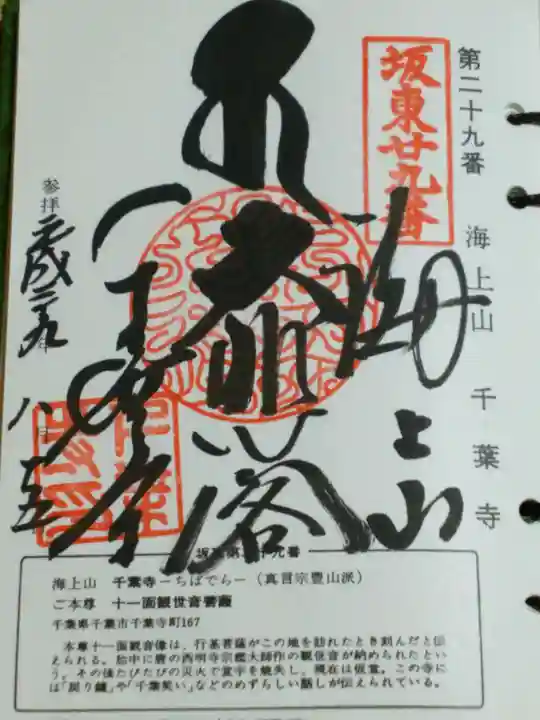 第二十九番 海上山 千葉寺
坂東廿九番
海上山
大悲閣
千葉寺
参拝 平成二九年 八月 五
坂東第二十九番
海上山 千葉寺－ちばでら－（真言宗豊山派）
ご本尊 十一面観世音菩薩
千葉県千葉市千葉寺町167
本尊十一面観音像は、行基菩薩がこの地を訪れたとき刻んだと伝
えられる。胎中に唐の西明寺宗檻大師作の観世音が納められたとい
う。その後たびたびの災火で堂宇を焼失し、現在は仮堂。この寺に
は「戻り鐘」や「千葉笑い」などのめずらしい話しが伝えられている。